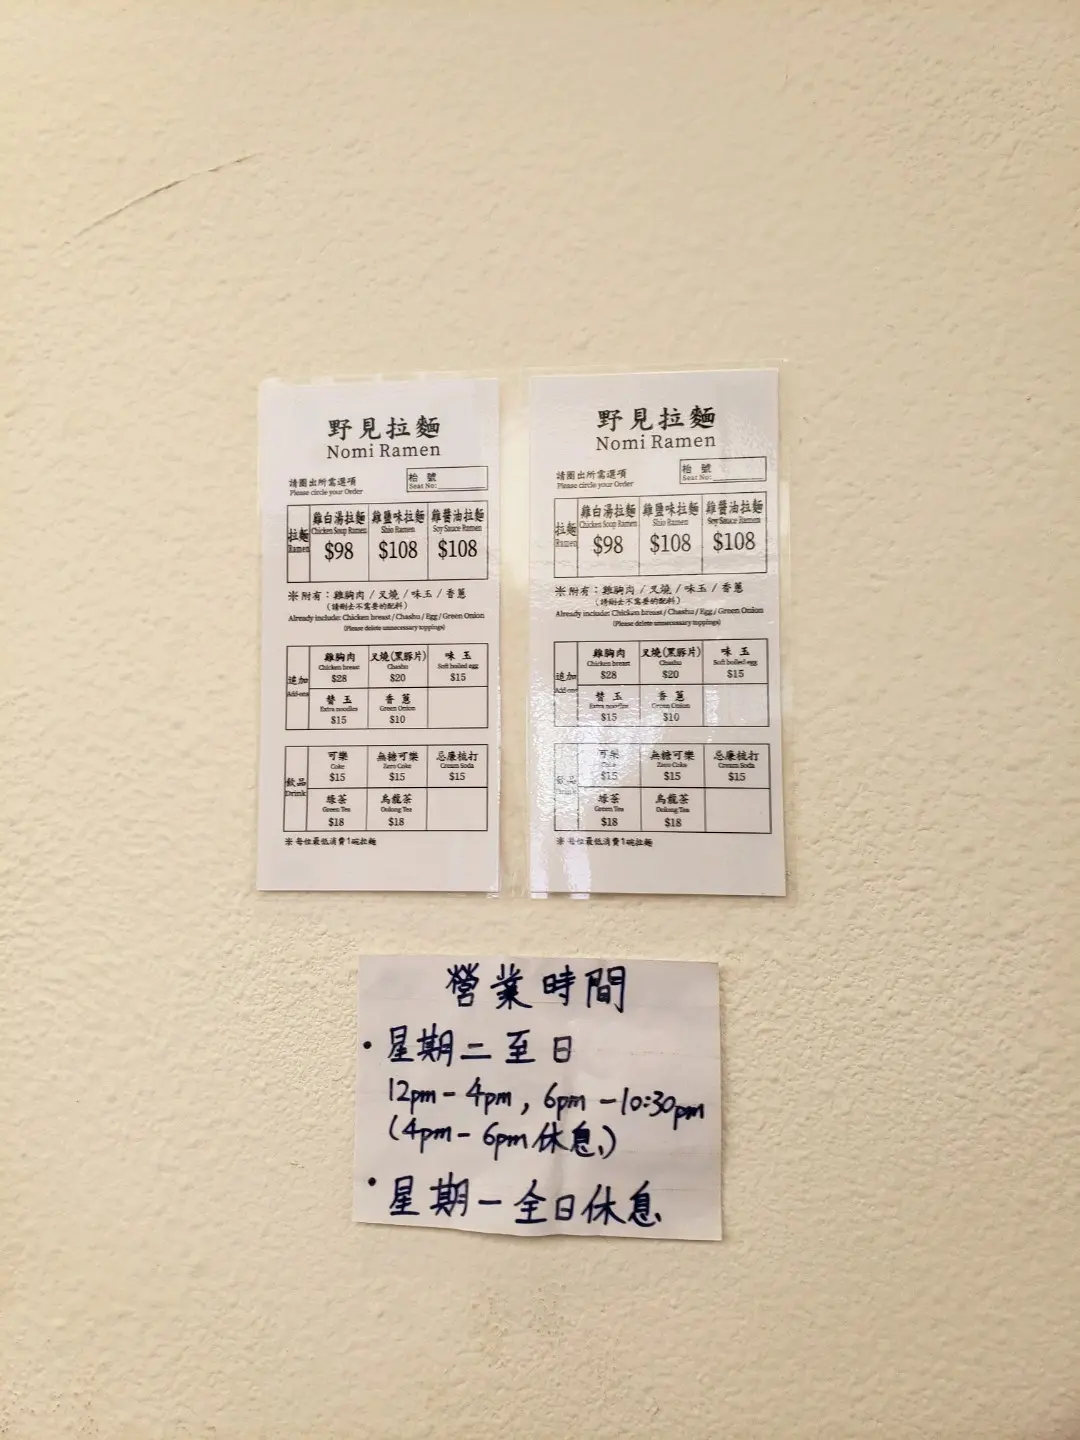 野見拉麵
Nomi Ramen
請圈出所需選項
Please circle your Order
枱 號
Seat No:
拉麵
Ramen
雞白湯拉麵 雞鹽味拉麵 雞醬油拉麵
Chicken Soup Ramen Shio Ramen Soy Sauce Ramen
$98 $108 $108
※附有：雞胸肉 / 叉燒 / 味玉 / 香蔥
(請刪去不需要的配料)
Already include: Chicken breast / Chashu / Egg / Green Onion
(Please delete unnecessary toppings)
追加
Add-ons
雞胸肉 叉燒(黑豚片) 味 玉
Chicken breast Chashu Soft boiled egg
$28 $20 $15
替 玉 香 蔥
Extra noodles Green Onion
$15 $10
飲品
Drink
可樂 無糖可樂 忌廉梳打
Coke Zero Coke Cream Soda
$15 $15 $15
綠茶 烏龍茶
Green Tea Oolong Tea
$18 $18
※每位最低消費1碗拉麵
野見拉麵
Nomi Ramen
請圈出所需選項
Please circle your Order
枱 號
Seat No:
拉麵
Ramen
雞白湯拉麵 雞鹽味拉麵 雞醬油拉麵
Chicken Soup Ramen Shio Ramen Soy Sauce Ramen
$98 $108 $108
※附有：雞胸肉 / 叉燒 / 味玉 / 香蔥
(請刪去不需要的配料)
Already include: Chicken breast / Chashu / Egg / Green Onion
(Please delete unnecessary toppings)
追加
Add-ons
雞胸肉 叉燒(黑豚片) 味 玉
Chicken breast Chashu Soft boiled egg
$28 $20 $15
替 玉 香 蔥
Extra noodles Green Onion
$15 $10
飲品
Drink
可樂 無糖可樂 忌廉梳打
Coke Zero Coke Cream Soda
$15 $15 $15
綠茶 烏龍茶
Green Tea Oolong Tea
$18 $18
※每位最低消費1碗拉麵
營業時間
• 星期二至日
12pm - 4pm, 6pm - 10:30pm
(4pm - 6pm 休息)
• 星期一全日休息